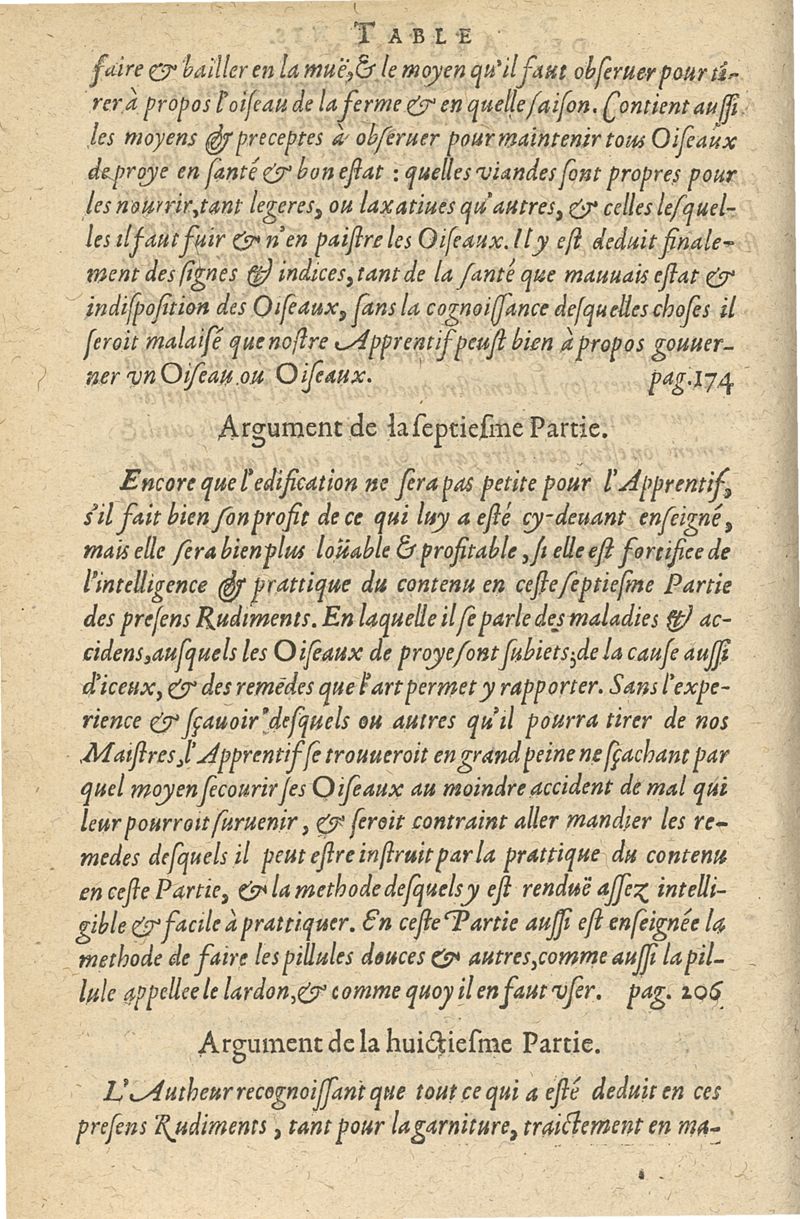 TABLE
faire & bailler en la muë, & le moyen qu'il faut obſeruer pour ti-
rer à propos l'oiseau de la ferme & en quelle ſaiſon. Contient auſſi
les moyens & preceptes à obſeruer pour maintenir tous Oiſeaux
de proye en ſanté & bon eſtat : quelles viandes ſont propres pour
les nourrir, tant legeres, ou laxatiues qu'autres, & celles leſquel-
les il faut fuir & n'en paiſtre les Oiſeaux. Il y eſt deduit finale-
ment des ſignes & indices, tant de la ſanté que mauuais eſtat &
indiſpoſition des Oiſeaux, ſans la cognoiſſance deſquelles choſes il
ſeroit malaiſé que noſtre Apprentif peuſt bien à propos gouuer-
ner vn Oiſeau ou Oiſeaux. pag. 174
Argument de la ſeptieſme Partie.
Encore que l'edification ne ſera pas petite pour l'Apprentif,
s'il fait bien ſon profit de ce qui luy a eſté cy-deuant enſeigné,
mais elle ſera bien plus loüable & profitable, ſi elle eſt fortifiee de
l'intelligence & prattique du contenu en ceſte ſeptieſme Partie
des preſens Rudiments. En laquelle il ſe parle des maladies & ac-
cidens, auſquels les Oiſeaux de proye ſont ſubiets; de la cauſe auſſi
d'iceux, & des remedes que l'art permet y rapporter. Sans l'expe-
rience & ſçauoir deſquels ou autres qu'il pourra tirer de nos
Maiſtres, l'Apprentif ſe trouueroit en grand peine ne ſçachant par
quel moyen ſecourir ſes Oiſeaux au moindre accident de mal qui
leur pourroit ſuruenir, & ſeroit contraint aller mandier les re-
medes deſquels il peut eſtre inſtruit par la prattique du contenu
en ceſte Partie, & la methode deſquels y eſt renduë aſſez intelli-
gible & facile à prattiquer. En ceſte Partie auſſi eſt enſeignée la
methode de faire les pillules douces & autres, comme auſſi la pil-
lule appellee le lardon, & comme quoy il en faut vſer. pag. 206
Argument de la huictieſme Partie.
L'Autheur recognoiſſant que tout ce qui a eſté deduit en ces
preſens Rudiments, tant pour la garniture, traictement en ma-